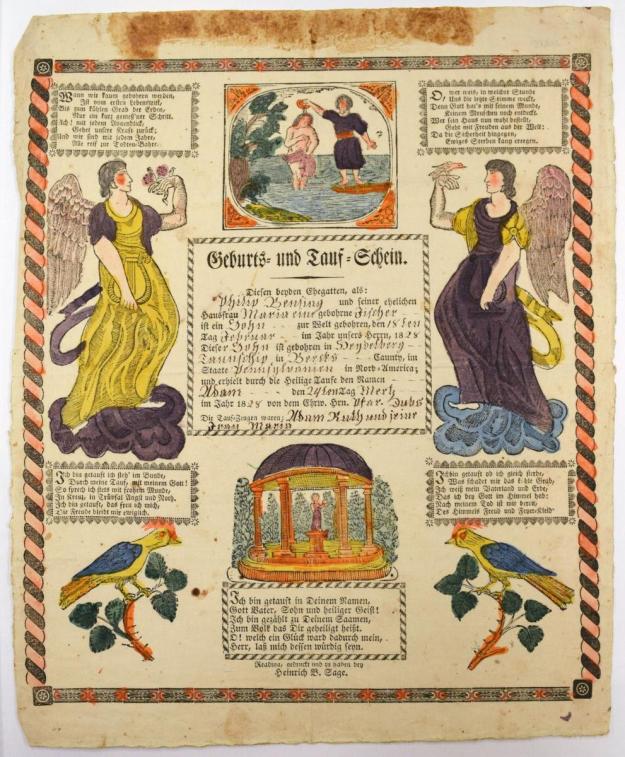 Wann wir kaum gebohren werden,
Ist vom ersten Lebenstritt,
Bis zum kühlen Grab der Erden,
Nur ein kurz gemeß'ner Schritt.
Ach! mit jedem Augenblick,
Gehet unsre Kraft zurück;
Und wir sind mit jedem Jahre,
Alle reif zur Todten-Bahre.
O! wer weis, in welcher Stunde
Uns die letzte Stimme weckt,
Denn Gott hat's mit seinem Munde,
Keinem Menschen noch entdeckt.
Wer sein Haus nun wohl bestellt,
Geht mit Freuden aus der Welt:
Da die Sicherheit hingegen,
Ewiges Sterben kann erregen.
Geburts- und Tauf-Schein.
Diesen beyden Ehegatten, als:
Philip Bensing und seiner ehelichen
Hausfrau Maria eine gebohrne Fischer
ist ein Sohn zur Welt gebohren, den 18ten
Tag Februar im Jahr unsers Herrn, 1828
Dieser Sohn ist gebohren in Heydelberg
Taunschip in Bercks Caunty, im
Staate Pennsylvanien in Nord-America;
und erhielt durch die Heilige Taufe den Namen
Adam den 24ten Tag Mertz
im Jahr 1828 von dem Ehrw. Hrn. Pfar.
Die Tauf-Zeugen waren: Adam Ruth und seine
Frau Maria
Ich bin getauft ich steh' im Bunde,
Durch meine Tauf, mit meinem Gott!
So sprech ich stets mit frohem Munde,
In Kreuz, in Trübsal Angst und Noth.
Ich bin getauft, das freu ich mich,
Die Freude bleibt mir ewiglich.
Ich bin getauft ob ich gleich sterbe,
Was schadet mir das Grab,
Ich weiß mein Vaterland und Erbe,
Das ich bey Gott im Himmel hab:
Nach meinem Tod ist mir bereit,
Des Himmels Freud und Feyer-Kleid
Ich bin getauft in Deinem Namen,
Gott Vater, Sohn und heiliger Geist!
Ich bin gezählt zu Deinem Saamen,
Zum Volk das Dir geheiligt heißt.
O! welch ein Glück ward dadurch mein,
Herr, laß mich dessen würdig seyn.
Reading, gedruckt und zu haben bey
Heinrich B. Sage.